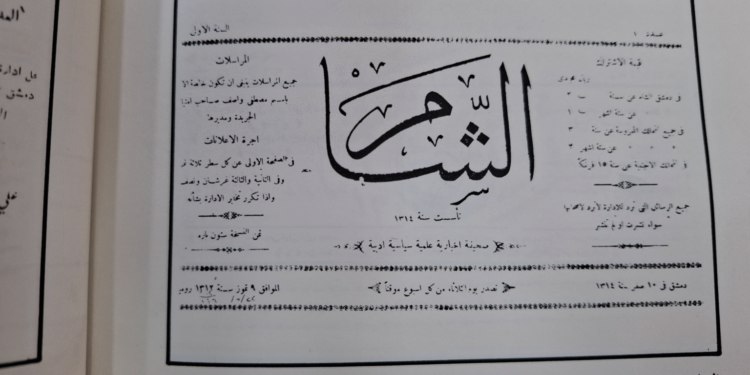 عدد ١
السنة الاولى
قيمة الاشتراك
ريال مجيدي
فى دمشق الشام عن سنة ٢
عن ستة اشهر ١
فى جميع الممالك المحروسة عن سنة ٣
» » » ستة اشهر ٢
فى الممالك الاجنبية عن سنة ١٥ فرنكا
جميع الرسائل التى ترد للادارة لا ترد لاصحابها
سواء نشرت او لم تنشر
الشام
تأسست سنة ١٣١٤
صحيفة اخبارية علمية سياسية ادبية
المراسلات
جميع المراسلات ينبغى ان تكون خالصة الا
باسم مصطفى واصف صاحب امتيا
الجريدة ومديرها
اجرة الاعلانات
فى الصحيفة الاولى عن كل سطر ثلاثة غر
وفى الثانية والثالثة غرشان ونصف
واذا تكرر تخابر الادارة بشأنه
ثمن النسخة ستون باره
دمشق فى ١٠ صفر سنة ١٣١٤
تصدر يوم الثلاثاء من كل اسبوع موقتا
الموافق ٩ تموز سنة ١٣١٢ رومية
كل ادارة
دمشق
علي